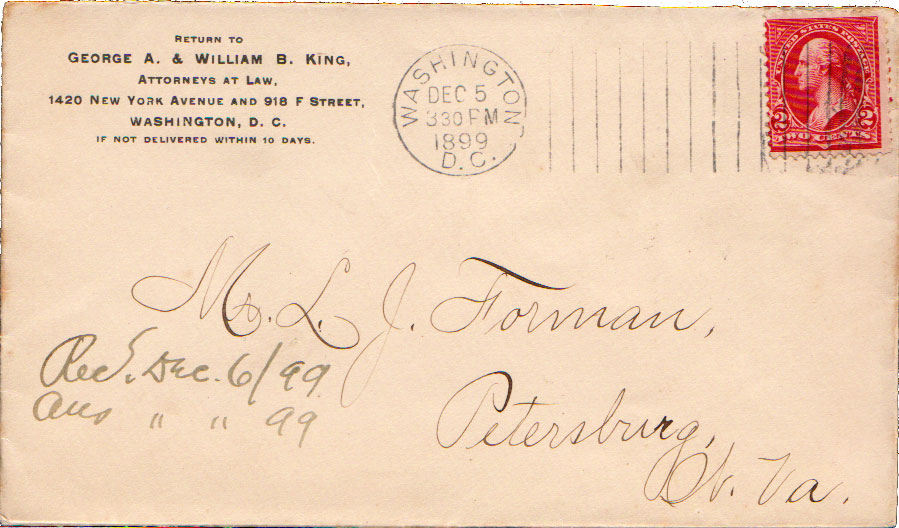 RETURN TO
GEORGE A. & WILLIAM B. KING,
ATTORNEYS AT LAW,
1420 NEW YORK AVENUE AND 918 F STREET,
WASHINGTON, D. C.
IF NOT DELIVERED WITHIN 10 DAYS.
WASHINGTON
DEC 5
330 PM
1899
D.C.
UNITED STATES POSTAGE
2 2
TWO CENTS
Mr. L. J. Forman,
Petersburg,
W. Va.
Rec'd. Dec. 6/99
Ans " " 99